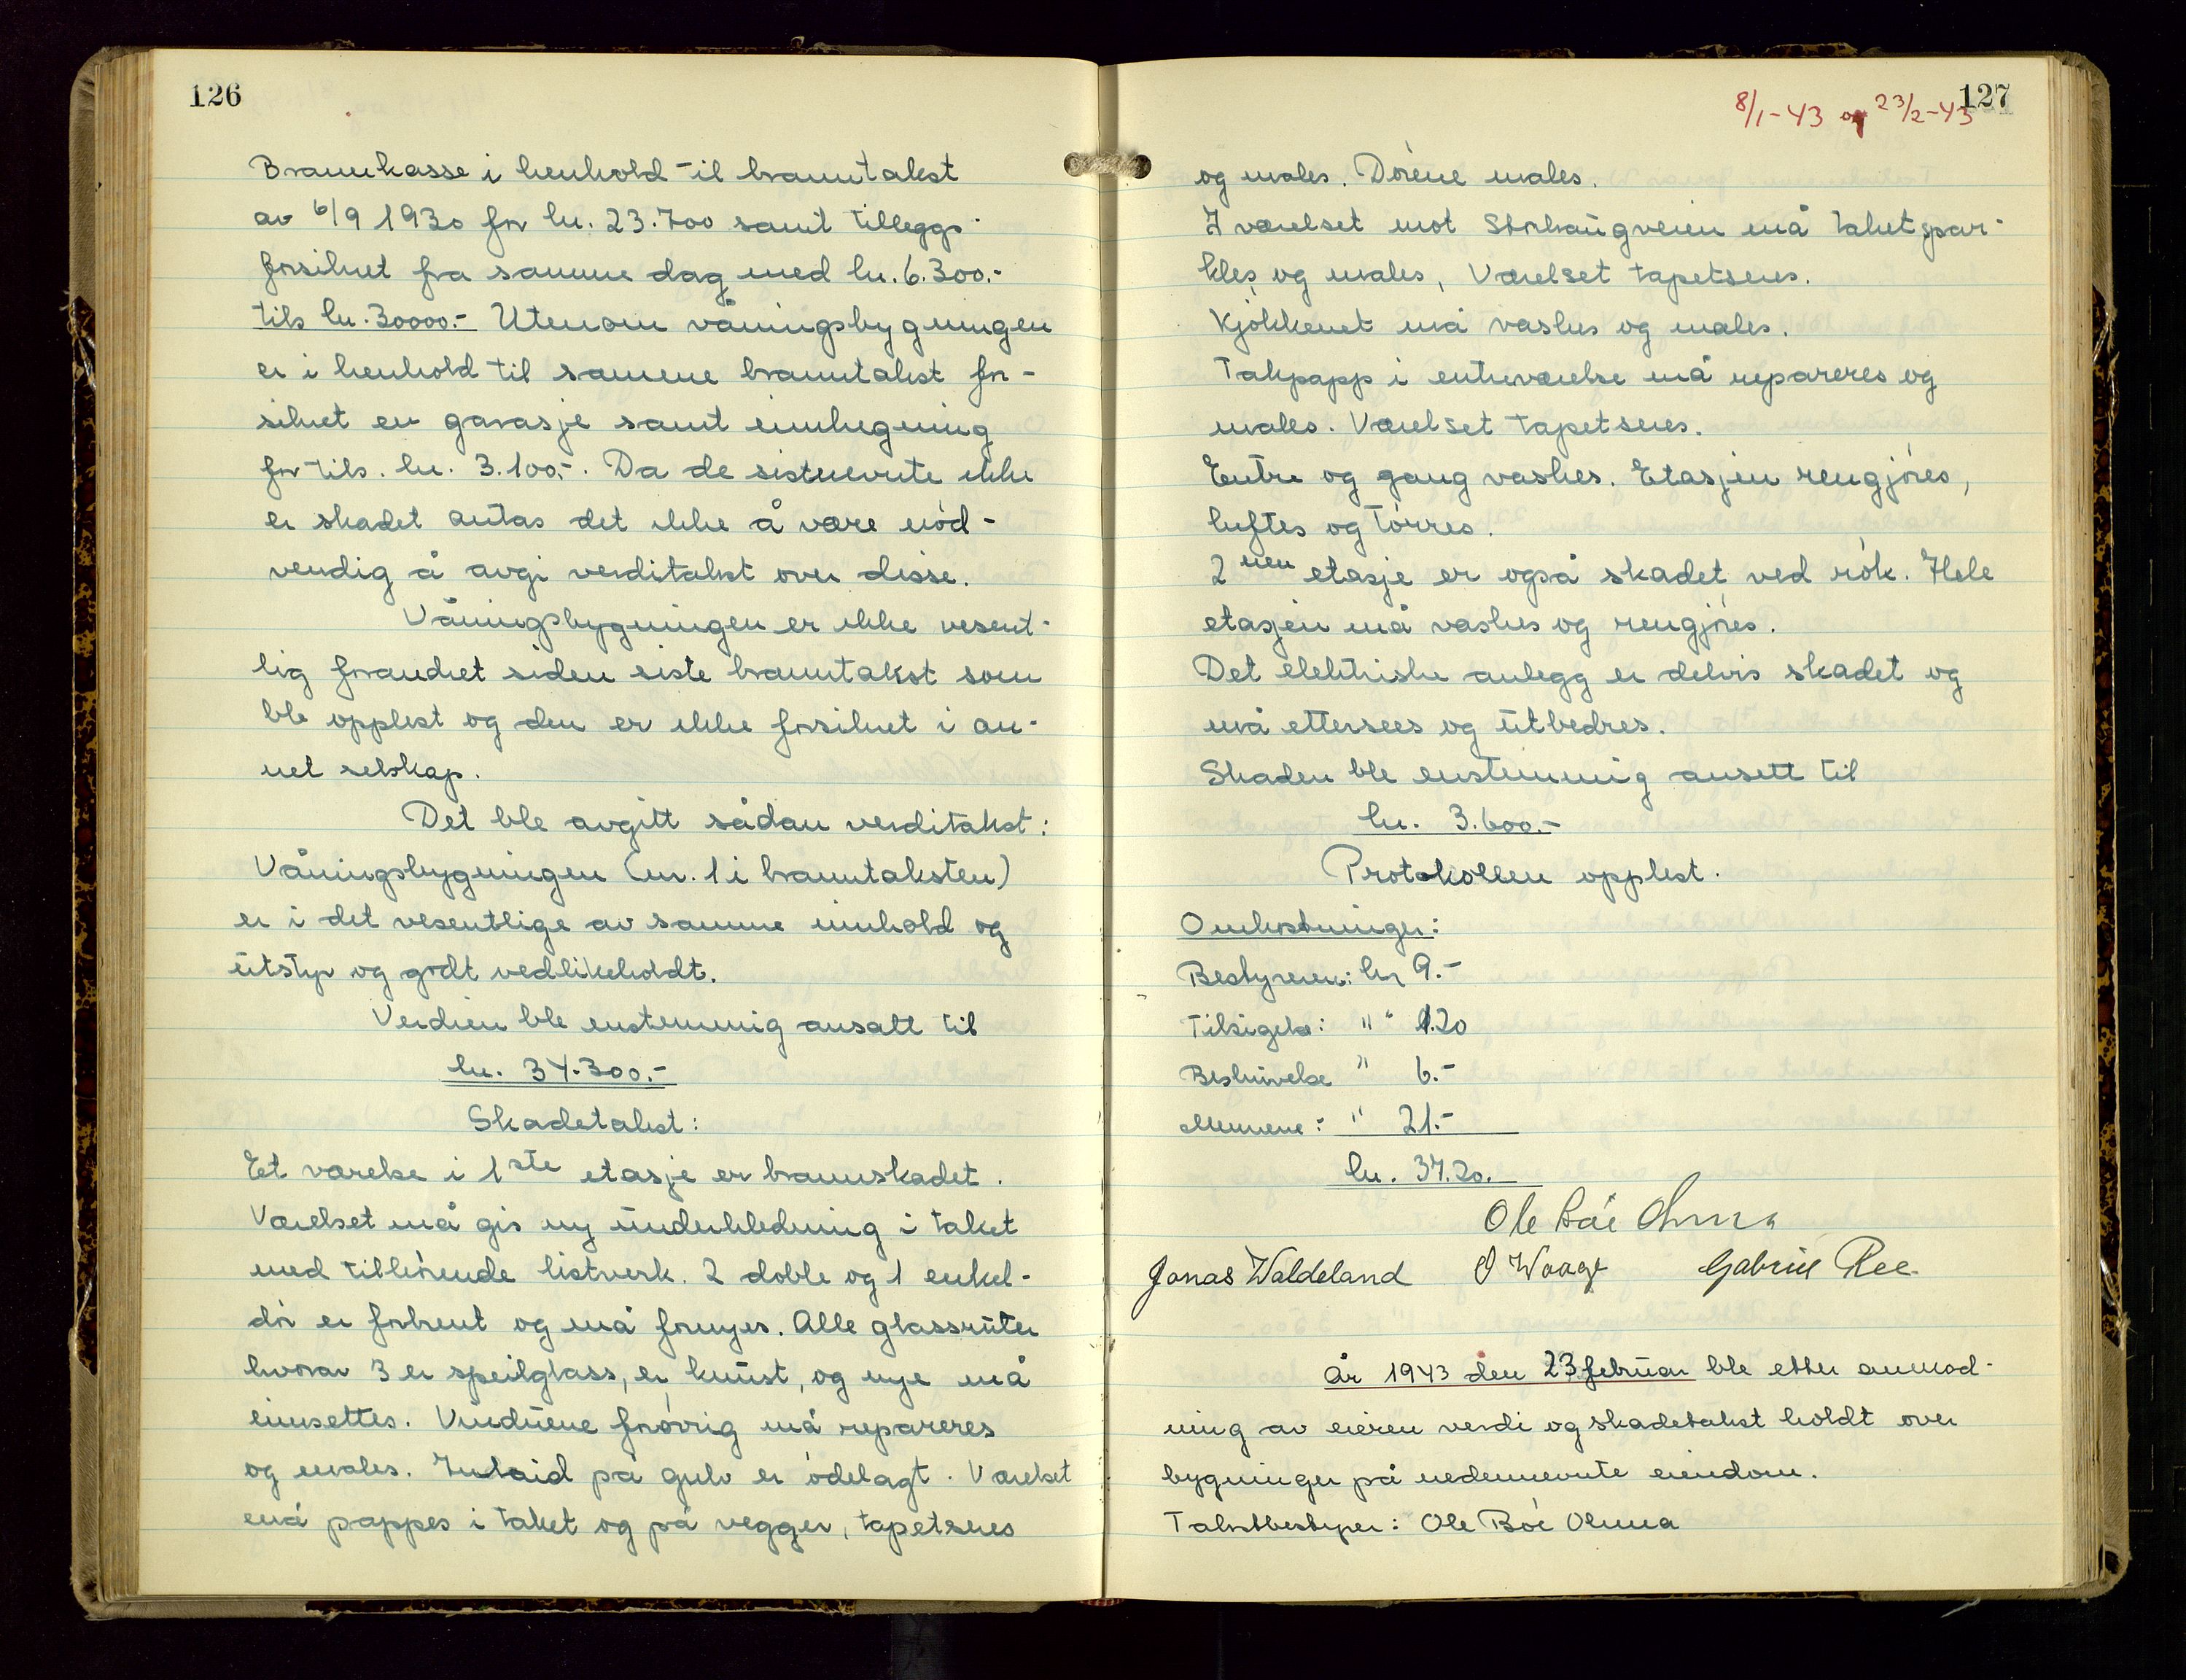 126
Brannkasse i henhold til branntakst
av 6/9 1930 for kr. 23.700 samt tilleggs-
forsikret fra samme dag med kr. 6.300.-
tils kr. 30000.- Utenom våningsbygningen
er i henhold til samme branntakst for-
sikret en garasje samt innhegning
for tils. kr. 3.100.-. Da de sistnevnte ikke
er skadet antas det ikke å være nød-
vendig å avgi verditakst over disse.
Våningsbygningen er ikke vesent-
lig forandret siden siste branntakst som
ble opplest og den er ikke forsikret i an-
net selskap.
Det ble avgitt sådan verditakst:
Våningsbygningen (nr. 1 i branntaksten)
er i det vesentlige av samme innhold og
utstyr og godt vedlikeholdt.
Verdien ble enstemmig ansatt til
kr. 34.300.-
Skadetakst:
Et værelse i 1ste etasje er brannskadet.
Værelset må gis ny underkledning i taket
med tilhörende listverk. 2 doble og 1 enkel-
dör er forbrent og må fornyes. Alle glassruter
hvorav 3 er speilglass, er knust, og nye må
innsettes. Vinduene forøvrig må repareres
og males. Inlaid på gulv er ödelagt. Værelset
må pappes i taket og på vegger, tapetseres
8/1-43 og 23/2-43
127
og males. Dörene males.
I værelset mot Storhaugveien må taket spar-
kles og males, Værelset tapetseres.
Kjökkenet må vaskes og males.
Takpapp i entreværelse må repareres og
males. Værelset tapetseres.
Entre og gang vaskes. Etasjen rengjöres,
luftes og törres.
2nen etasje er også skadet ved rök. Hele
etasjen må vaskes og rengjöres.
Det elektriske anlegg er delvis skadet og
må ettersees og utbedres.
Skaden ble enstemmig ansett til
kr. 3.600.-
Protokollen opplest.
Omkostninger:
Bestyreren: kr 9.-
Tilsigelse: " " 1.20
Beskrivelse " 6.-
Mennene: " 21.-
kr. 37.20.
Ole Böe Ohma
Jonas Waldeland O Waage Gabriel Ree
År 1943 den 23 februar ble etter anmod-
ning av eieren verdi og skadetakst holdt over
bygninger på nedennevnte eiendom.
Takstbestyrer: Ole Böe Ohma